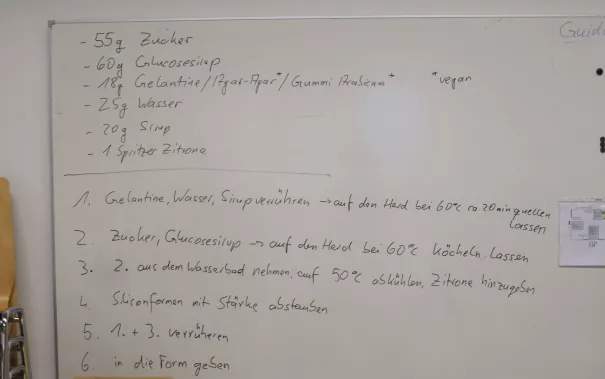 Guide
- 55g Zucker
- 60g Glucosesirup
- 18g Gelantine/Agar-Agar*/Gummi Arabicum*  *vegan
- 25g Wasser
- 20g Sirup
- 1 Spritzer Zitrone
1. Gelantine, Wasser, Sirup verrühren → auf den Herd bei 60°C ca. 20min quellen
lassen
2. Zucker, Glucosesirup → auf den Herd bei 60°C köcheln lassen
3. 2. aus dem Wasserbad nehmen, auf 50°C abkühlen, Zitrone hinzugeben
4. Siliconformen mit Stärke abstauben
5. 1. + 3. verrüheren
6. in die Form geben